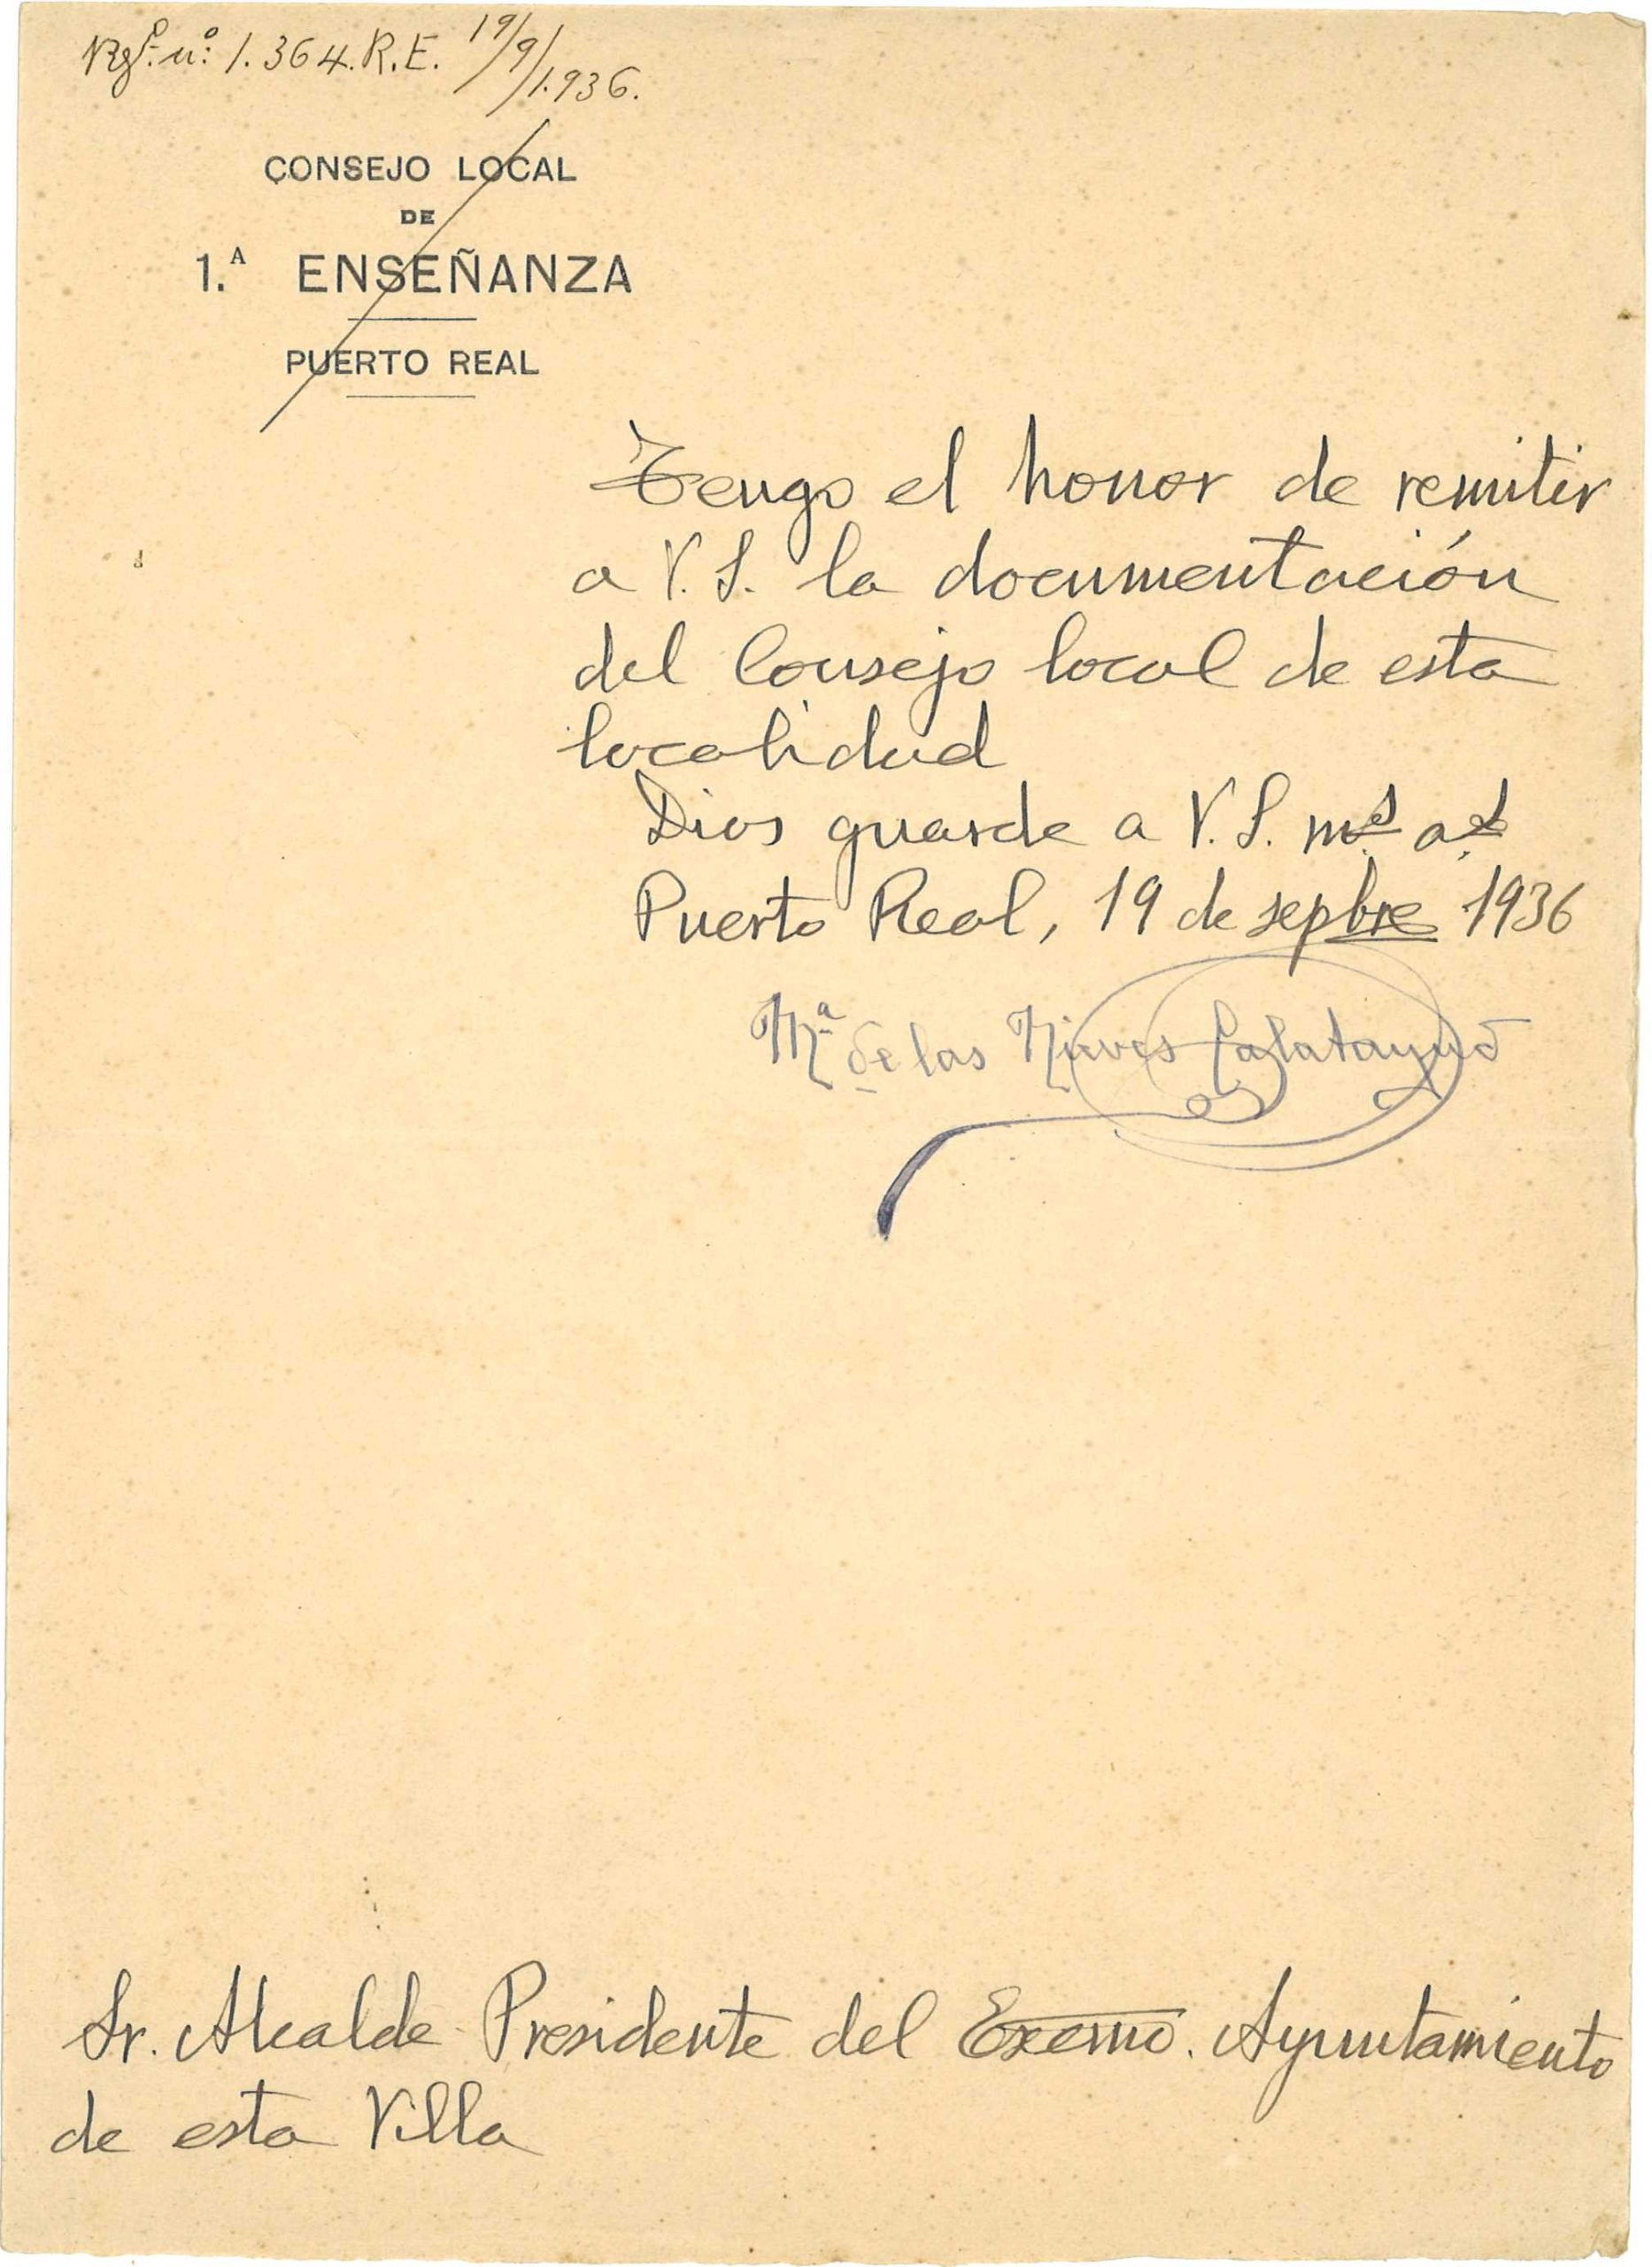 Rgº. nº: 1.364. R.E. 19/9/1.936.
CONSEJO LOCAL
DE
1.ᴬ ENSEÑANZA
PUERTO REAL
Tengo el honor de remitir
a V. S. la documentación
del Consejo local de esta
localidad
Dios guarde a V. S. mˢ aˢ
Puerto Real, 19 de sepbre 1936
Mª de las Nieves Calatayud
Sr. Alcalde Presidente del Excmo. Ayuntamiento
de esta Villa